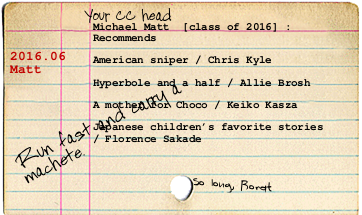 Your CC head
Michael Matt [class of 2016] :
Recommends
2016.06
Matt
American sniper / Chris Kyle
Hyperbole and a half / Allie Brosh
A mother for Choco / Keiko Kasza
Japanese children's favorite stories
/ Florence Sakade
Run fast and carry a
machete.
So long,